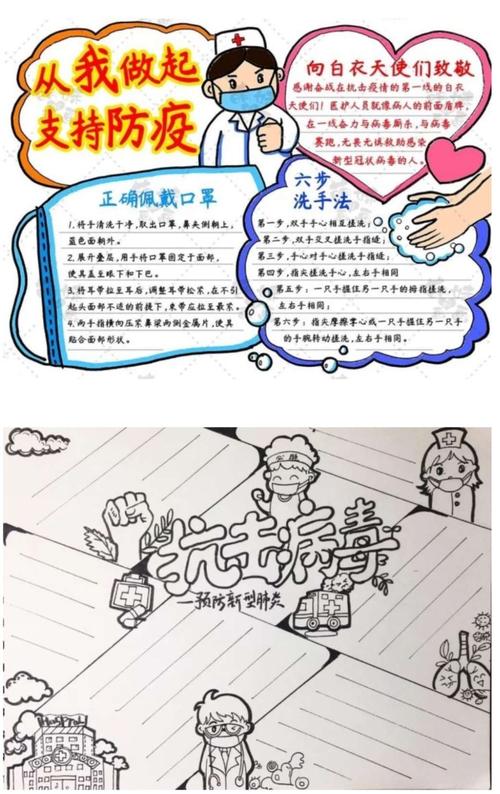 从我做起
支持防疫
向白衣天使们致敬
感谢奋战在抗击疫情的第一线的白衣
天使们！医护人员就像病人的前面盾牌，
在一线奋力与病毒厮杀，与病毒
赛跑，无畏无惧救助感染
新型冠状病毒的人。
正确佩戴口罩
1.将手清洗干净，取出口罩，鼻夹侧朝上，
蓝色面朝外。
2.展开叠层，用手将口罩固定于面部，
使其盖至眼下和下巴。
3.将耳带拉至耳后，调整耳带松紧，在不引
起头面部不适的前提下，束带应拉至最紧。
4.两手指横向压紧鼻梁两侧金属片，使其
贴合面部形状。
六步
洗手法
第一步，双手手心相互搓洗；
第二步，双手交叉搓洗手指缝；
第三步，手心对手心搓洗手指缝；
第四步，指尖搓洗手心，左右手相同
第五步：一只手握住另一只手的拇指搓洗，
左右手相同；
第六步：指尖摩擦掌心或一只手握住另一只手
的手腕转动搓洗，左右手相同。
抗击病毒
—预防新型肺炎
HOSPITAL